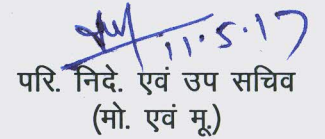 11.5.17
परि. निदे. एवं उप सचिव
(मो. एवं मू.)